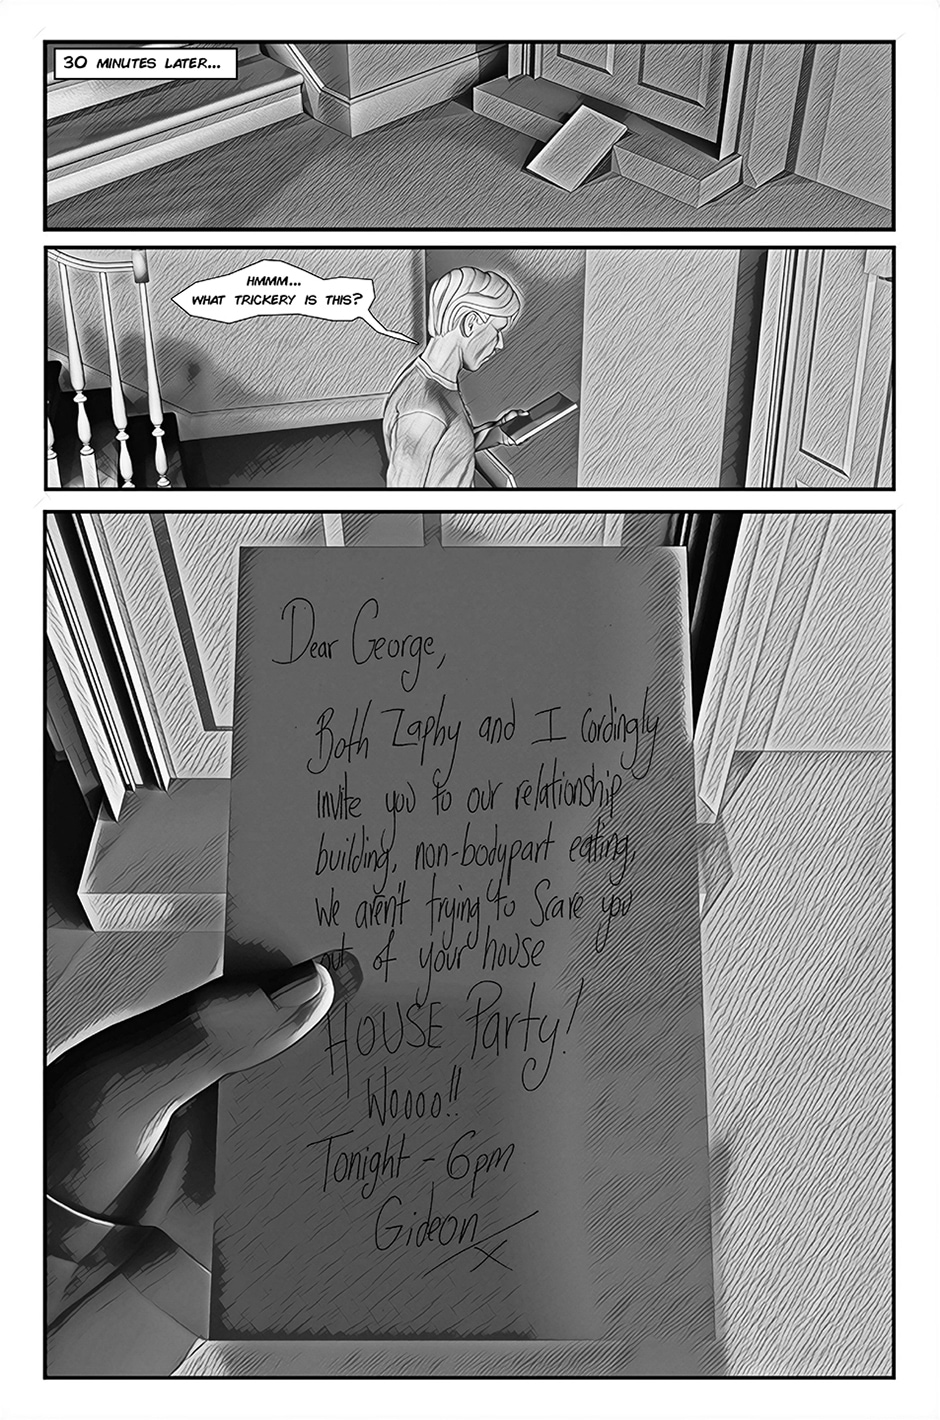 30 MINUTES LATER...
HMMM...
WHAT TRICKERY IS THIS?
Dear George,
Both Zaphy and I cordingly
invite you to our relationship
building, non-bodypart eating,
we aren't trying to scare you
out of your house
HOUSE Party!
Woooo!!
Tonight - 6pm
Gideon
x